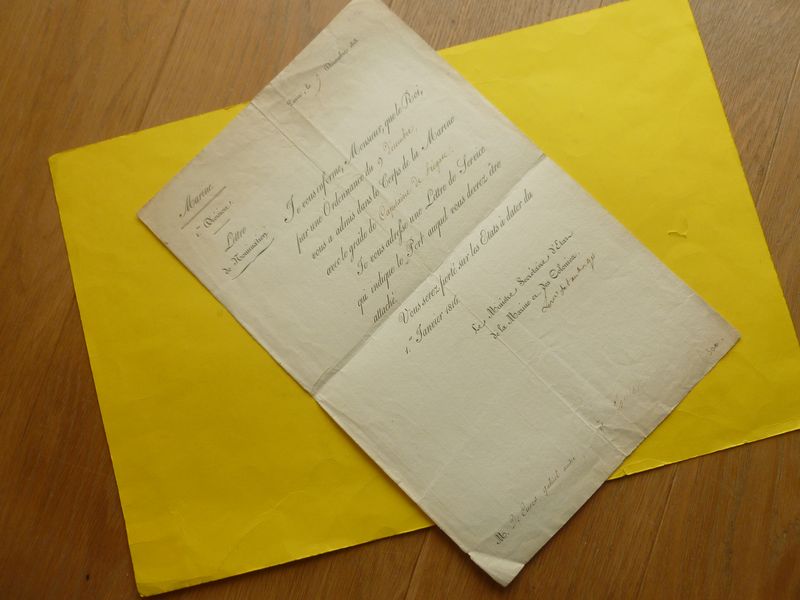 Paris, le 9 Décembre
Marine
Division
Lettre
de Nomination
Je vous informe, Monsieur, que le Roi,
par une Ordonnance du 9 Décembre,
vous a admis dans le Corps de la Marine
avec le grade de Capitaine de frégate.
Je vous adresse une Lettre de Service
qui indique le Port auquel vous devrez être
attaché.
Vous serez porté sur les Etats à dater du
1.er Janvier 1816.
Le Ministre Secrétaire d'Etat
de la Marine et des Colonies
M. gabriel